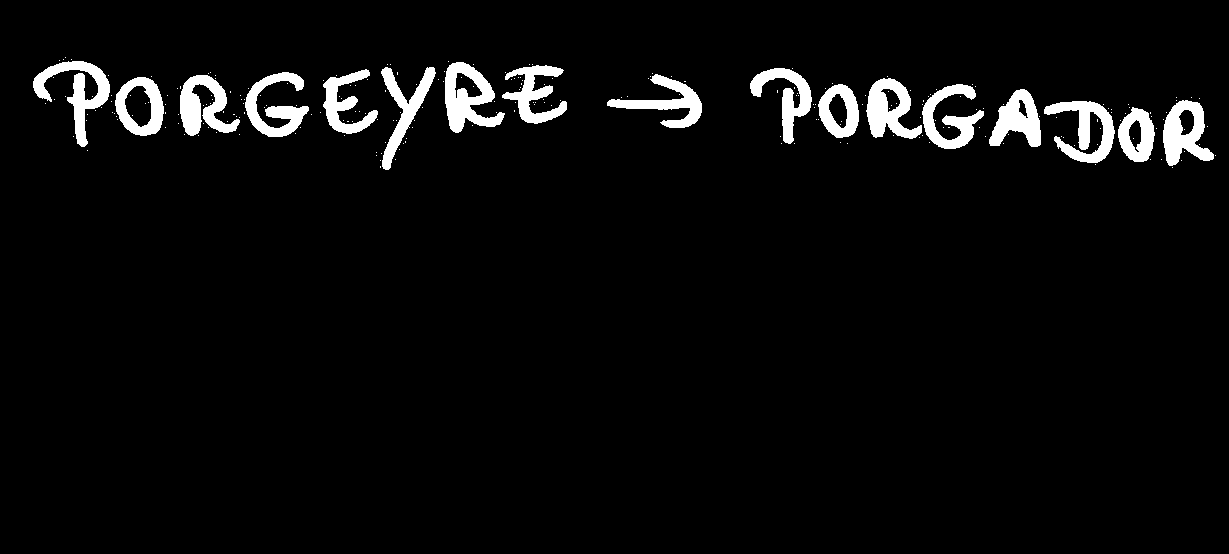 PORGEYRE → PORGADOR